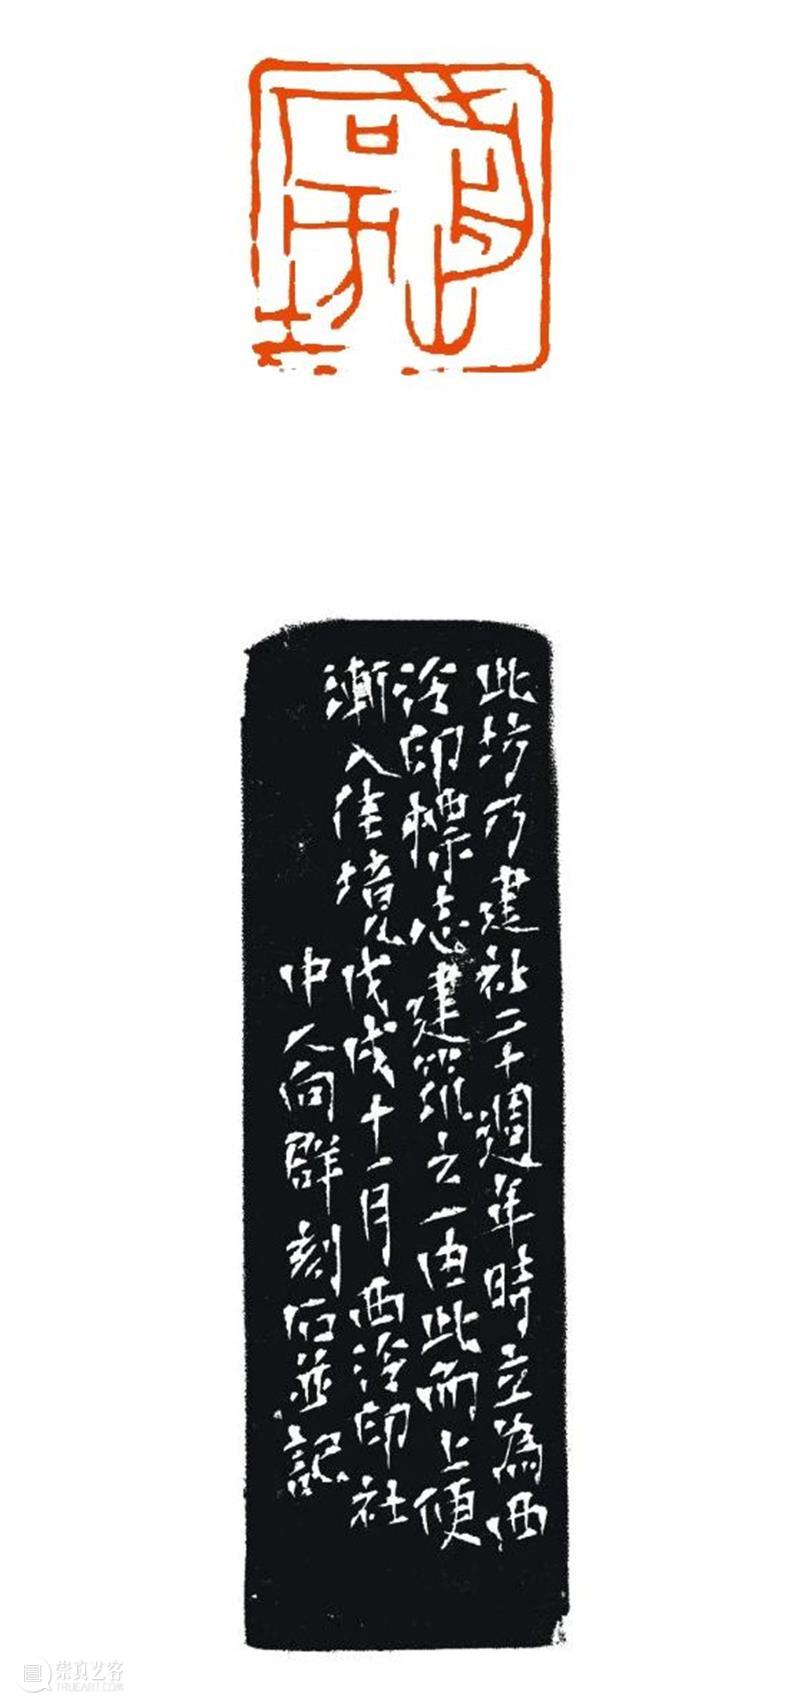 前山
石坊
此坊乃建社二十週年時立為西
泠印標志建築之一由此而上便
漸入佳境戊戌十一月西泠印社
中人向群刻石並記
崇真艺客
WWW.TRUEART.COM